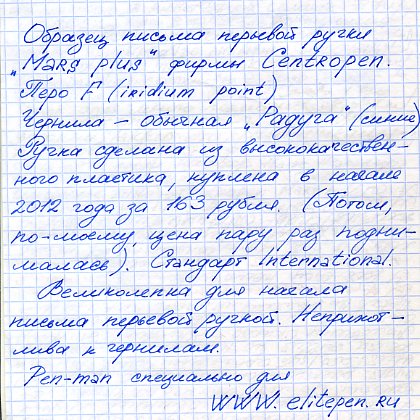 Образец письма перьевой ручки
„Mars plus“ фирмы Centropen.
Перо F (iridium point)
Чернила – обычная „Радуга“ (синие)
Ручка сделана из высококачествен-
ного пластика, куплена в начале
2012 года за 163 рубля. (Потом,
по-моему, цена пару раз подни-
малась). Стандарт International.
Великолепна для начала
письма перьевой ручкой. Неприхот-
лива к чернилам.
Pen-man специально для
www.elitepen.ru